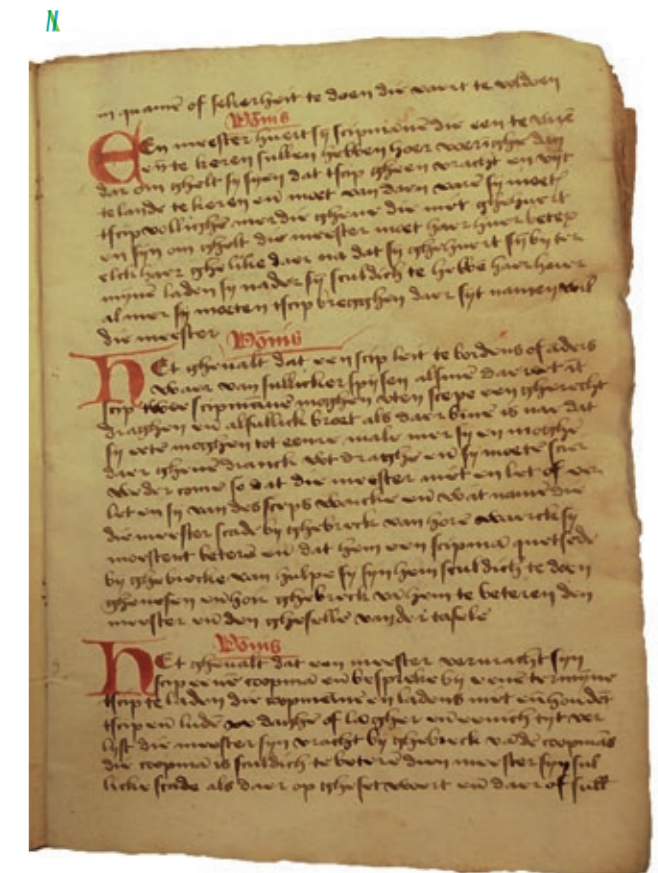 N
in quame of sekerheit te doen die vaert te voldoen
Võnis
EEn meester huert sy scipmãnẽ die een te
eñ te keren sullen hebben hoer
dar om ghelt sy syen dat tscip gheen vracht en vyt
te lande te keren en moet van daen varẽ sy moetẽ
tscip volligh mer die ghene die met ghehuert
en syn om ghelt die meester moet haer huer beterẽ
elck haer ghelike daer na dat sy ghehuert sy by ter
laden sy nader sy sculdich te hebbẽ haer huer
al mer sy moeten tscip brenghen daer syt namen wil
die meester Võnis
HEt gheualt dat een scip leit te bordeus of aders
waer van sullicker spysen alsmẽ daer eet ĩt
scip twee scipmãne moghen vten scepe een gherecht
draghen eñ alsullick broet als daer bĩne is nae dat
sy etẽ moghen tot eenre male mer sy en moghẽ
daer ghenẽ dranck wt draghẽ eñ sy moetẽ scier
weder comẽ so dat die meester niet en let of ver
let en sy van des sceps wercke eñ wat namẽ die
die meester scade by ghebreck van horẽ wercke sy
moestent beterẽ eñ dat hem een scipmã quetsede
by ghebrecke van hulpe sy syn hem sculdich te doen
ghenesen eñ hoer ghebreck eñ hem te beteren den
meester eñ den gheselle vander tafele
Võnis
HEt gheualt dat een meester vervracht syn
scip eenẽ coopmã eñ besproke by eenẽ termijne
tscip te laden die coopmanne en ladens niet eñ houdẽt
tscip eñ lude daghe of langher eñ eenich tyt ver
lyst die meester syn vracht by ghebreck vãdẽ coopmãs
die coopmã is sculdich te beterẽ dien meester syn sul
licke scade als daer op ghesetwert eñ daer of sull